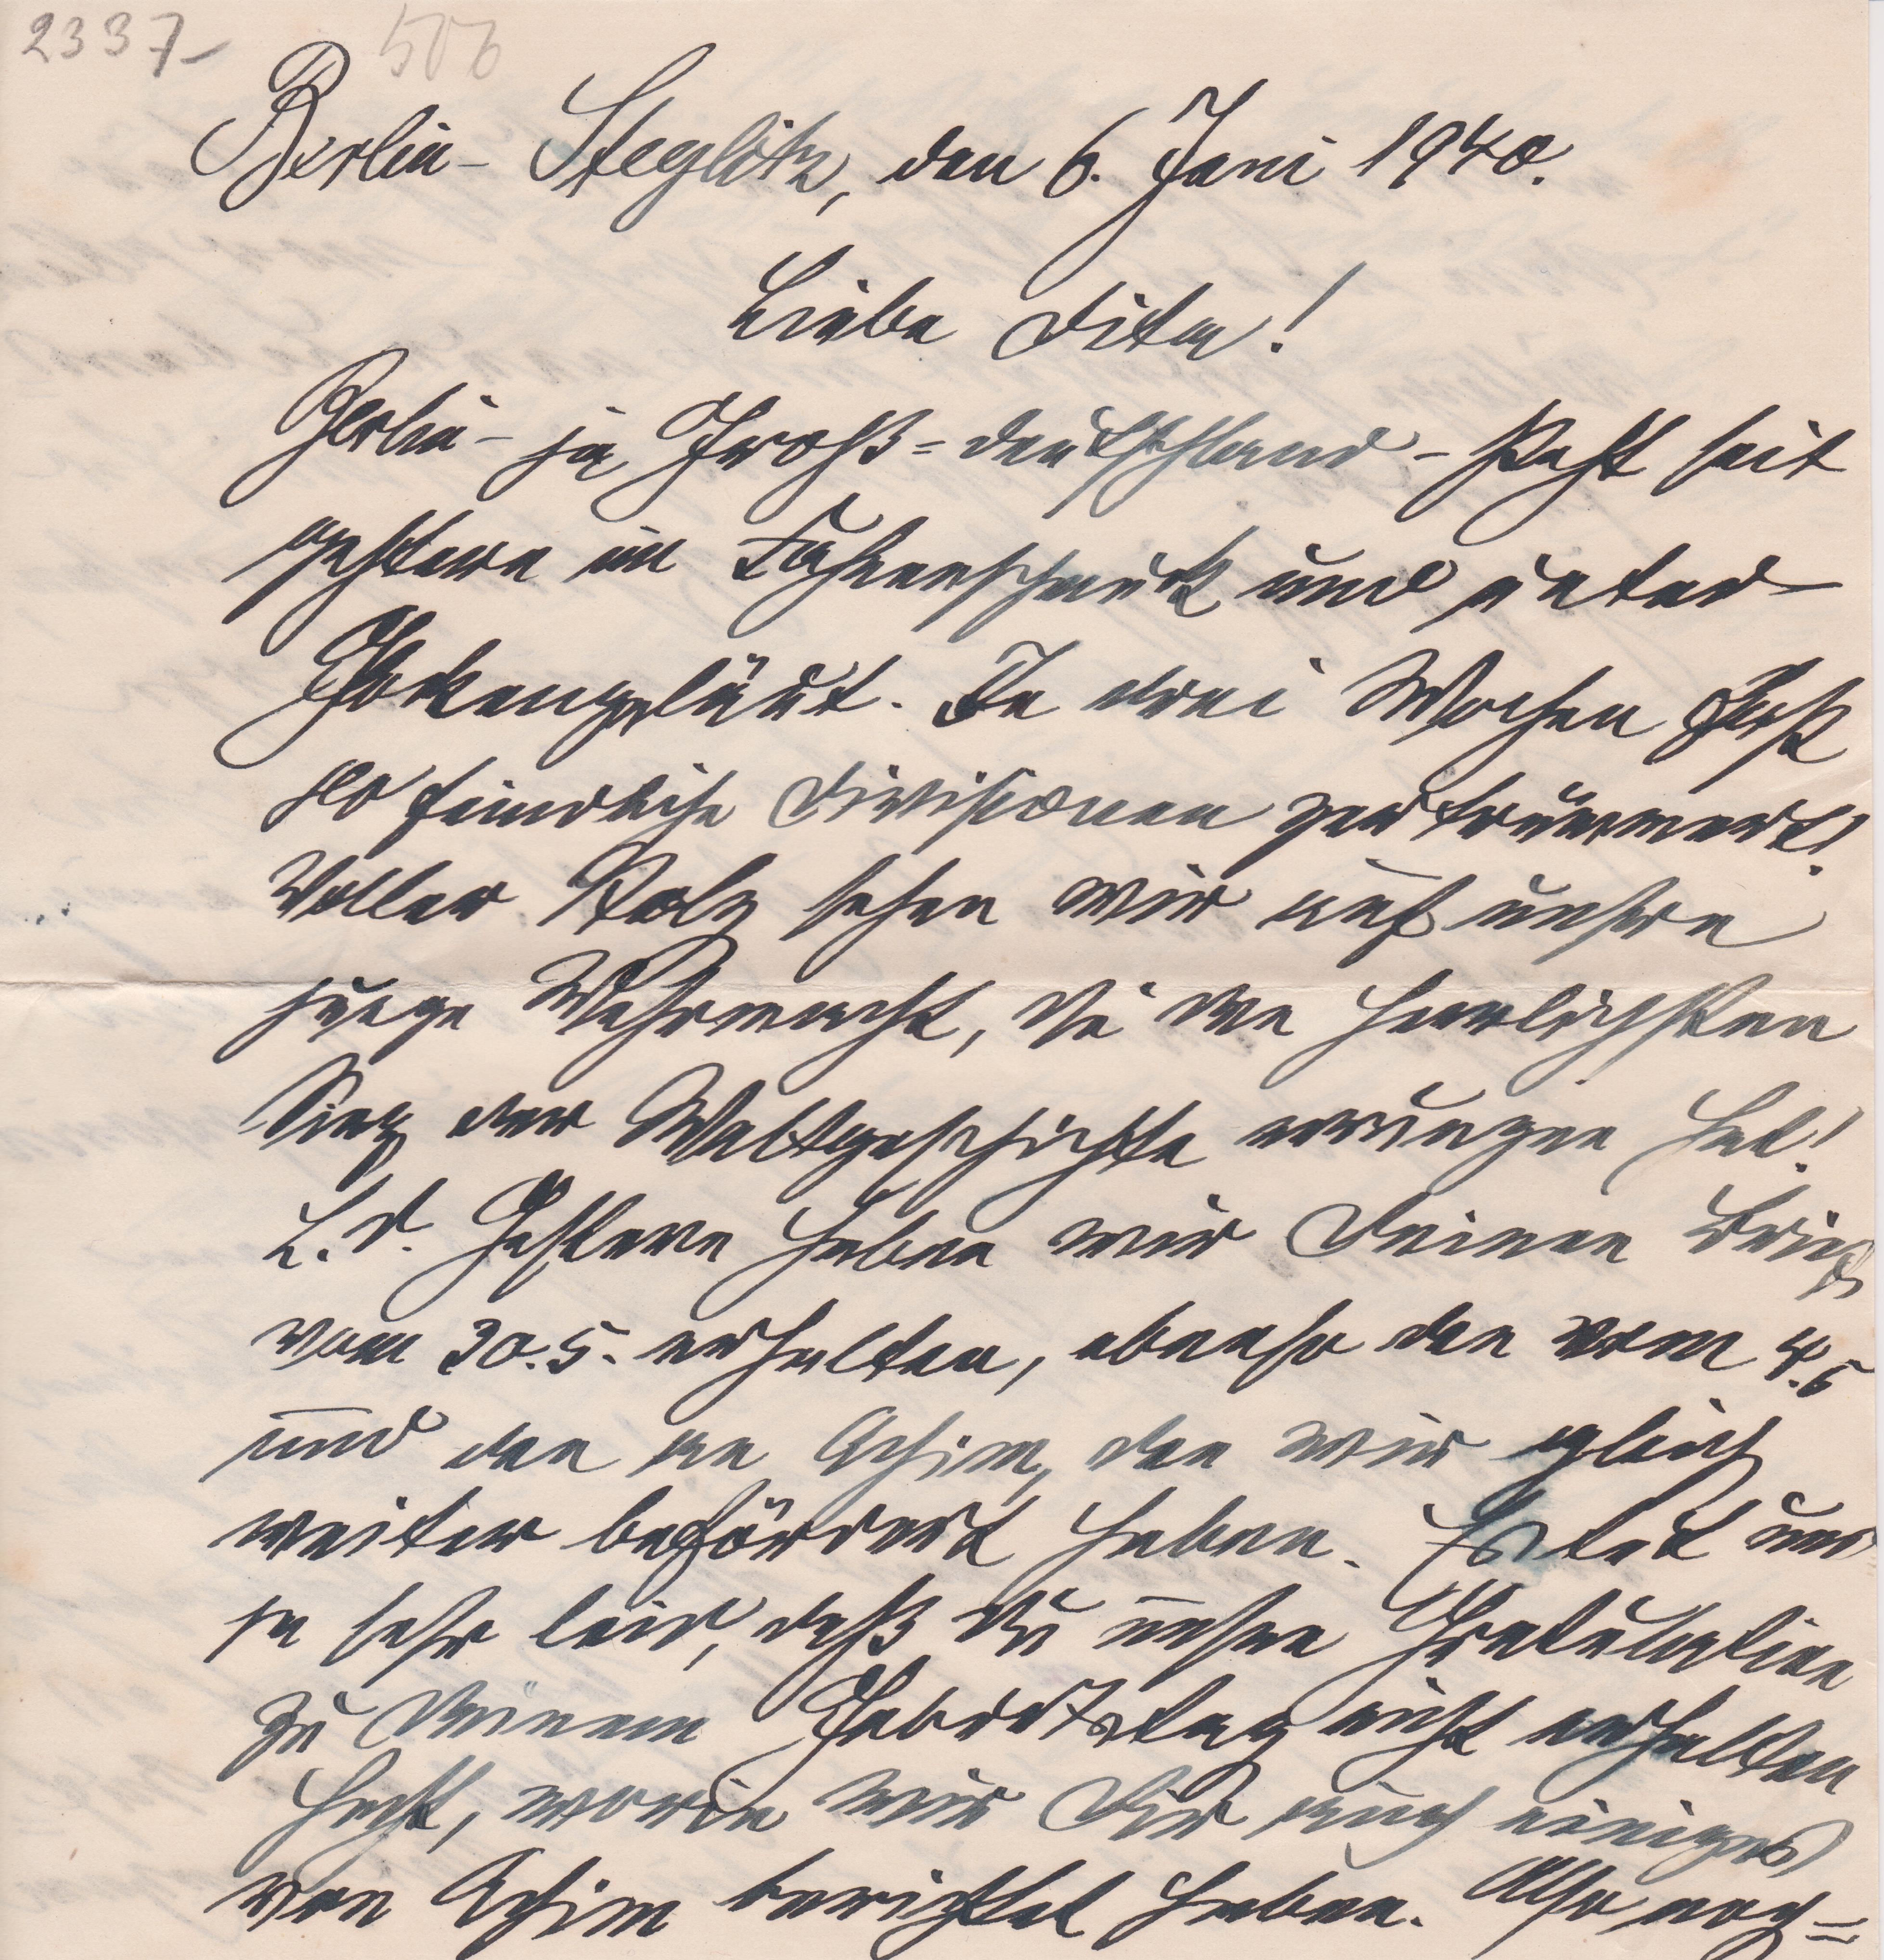 2337- 506
Berlin- Steglitz, den 6. Juni 1940.
Liebe Dita!
Berlin - ja Groß=deutschland - steht seit
gestern im Fahnenschmuck und unter
Glockengeläut. In drei Wochen
feindliche Divisionen zertrümmert!
Voller Stolz sehen wir auf unsre
junge Wehrmacht, die den herrlichsten
Sieg der Weltgeschichte errungen hat!
L. D. Gestern haben wir Deinen Brief
vom 30.5. erhalten, ebenso den vom 4.6
und den an Achim, den wir gleich
weiter befördert haben. Es tut uns
ja sehr leid, daß Du unsre Gratulation
zu Deinem Geburtstag nicht erhalten
hast, worin wir Dir auch einiges
von Achim berichtet haben. Also noch=